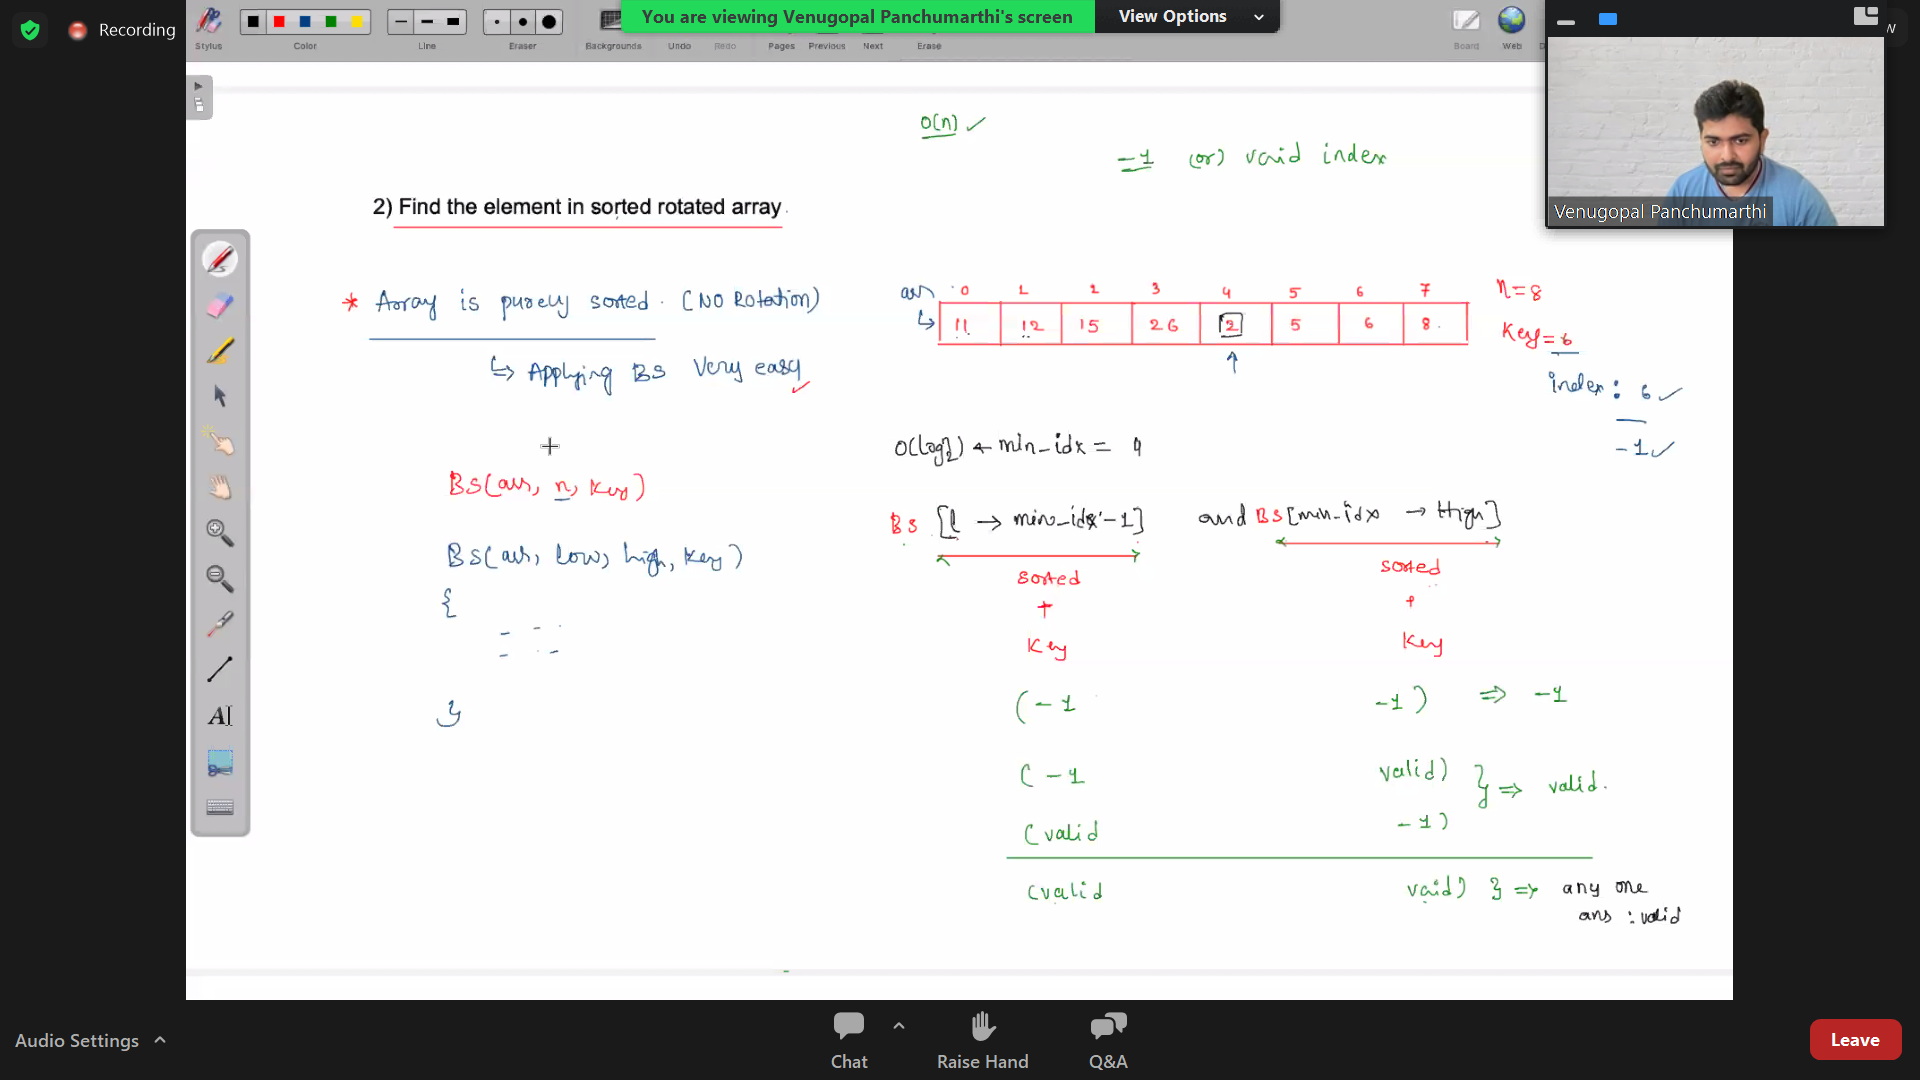 Recording
Stylus
Color
Line
Eraser
Backgrounds
Undo
Redo
Pages
Previous
Next
Erase
You are viewing Venugopal Panchumarthi's screen
View Options
Board
Web
D
W
Venugopal Panchumarthi
O(n) ✓
-1 (or) vaid index
2) Find the element in sorted rotated array
* Array is purely sorted. (NO Rotation)
↳ Applying BS Very easy ✓
arr
0 1 2 3 4 5 6 7
n=8
↳ 11 12 15 26 2 5 6 8
Key = 6
index: 6 ✓
-1 ✓
O(log₂) ← min_idx = 4
BS(arr, n, Key)
BS [l → min_idx-1] and BS[min-idx → High]
BS(arr, low, high, Key)
{
}
sorted
+
Key
sorted
+
Key
(-1 -1) ⇒ -1
(-1 valid) } ⇒ valid.
(valid -1)
(valid vaid) } ⇒ any one
ans : valid
AI
Audio Settings
Chat
Raise Hand
Q&A
Leave